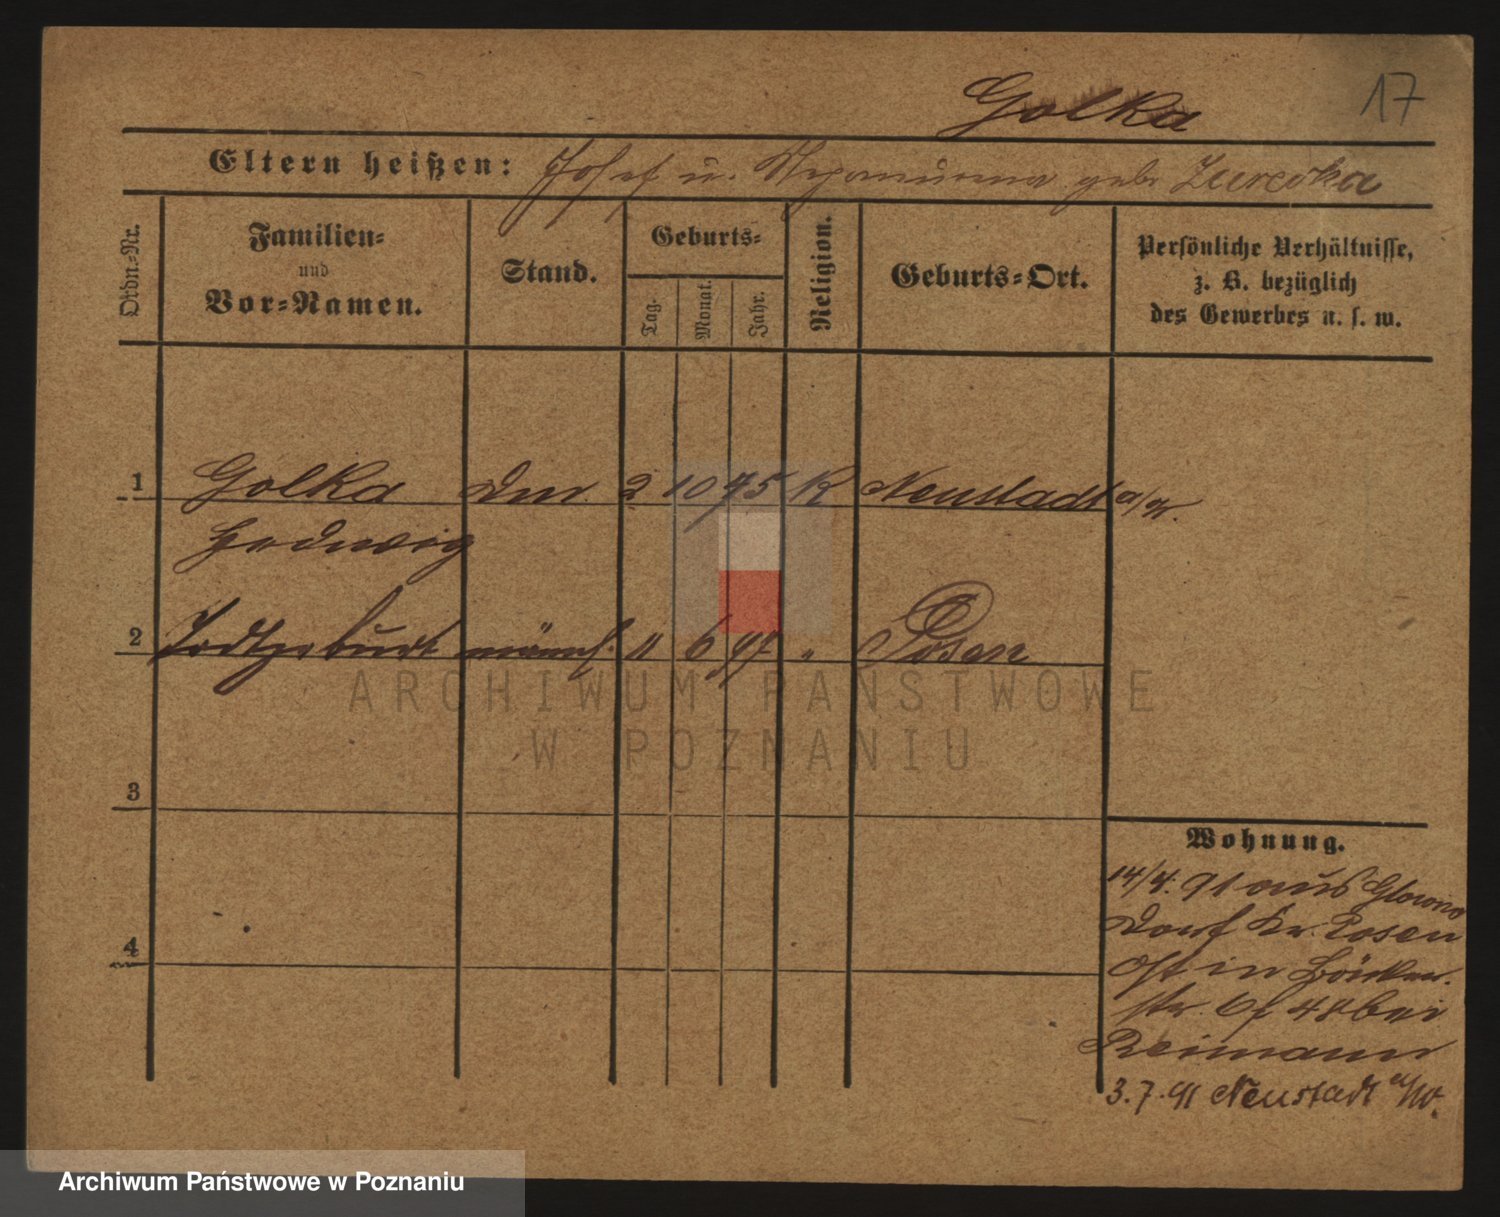 Golka
17
Eltern heißen: Josef u. Nepomucena geb. Zurevka
Ordn.-Nr.
Familien-
und
Vor-Namen.
Stand.
Geburts-
Tag.
Monat.
Jahr.
Religion.
Geburts-Ort.
Persönliche Verhältnisse,
z. B. bezüglich
des Gewerbes u. s. w.
1 Golka 2 10 75 K Neustadt a/W.
Hedwig
2 Todtgeburt männl. 11 6 91 " Posen
ARCHIWUM PAŃSTWOWE
W POZNANIU
3
Wohnung.
14/4. 91 aus Glowno
Dorf Kr. Posen
Ost in
4
str. 48 bei
Reimann
3.7.91 Neustadt a/W.
Archiwum Państwowe w Poznaniu